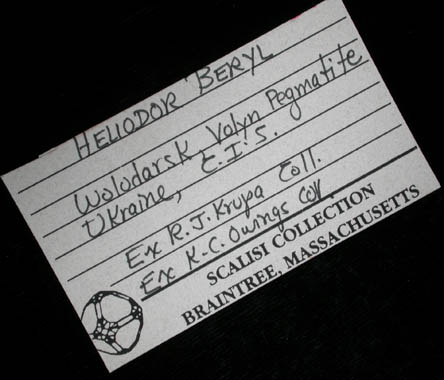 HELIODOR BERYL
Wolodarsk, Volyn Pegmatite
Ukraine, C.I.S.
Ex R.J. Krupa Coll.
Ex K.C. Owings Coll
SCALISI COLLECTION
BRAINTREE, MASSACHUSETTS